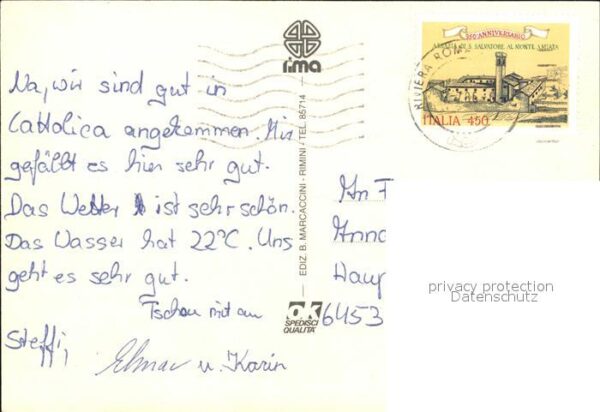 Na, wir sind gut in
Cattolica angekommen. Mir
gefällt es hier sehr gut.
Das Wetter ist sehr schön.
Das Wasser hat 22°C. Uns
geht es sehr gut.
Tschau mit au
Steffi,
Elmar u. Karin
rima
EDIZ. B. MARCACCINI - RIMINI - TEL. 85714
OK
SPEDISCI
QUALITÀ
950° ANNIVERSARIO
ABBAZIA DI S. SALVATORE AL MONTE AMIATA
ITALIA 450
RIVIERA ROM
An F
Anna
Haup
6453
privacy protection
Datenschutz